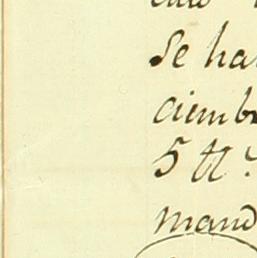 Se ha
ciemb
5 tt
mand